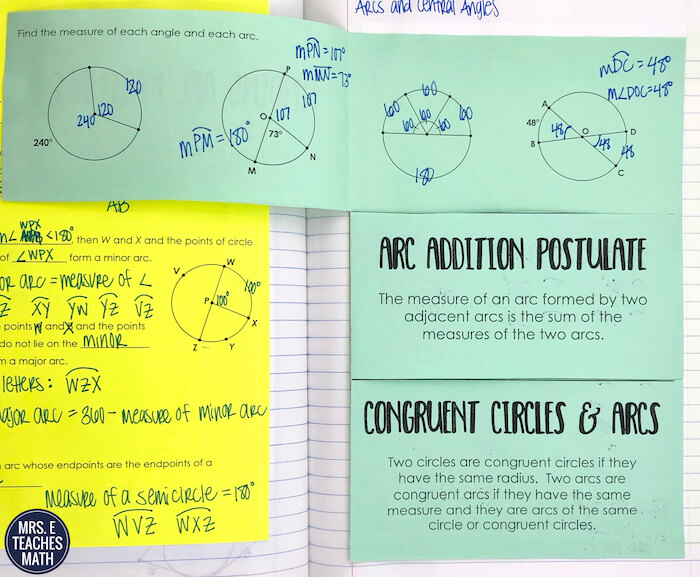 Arcs and Central Angles
Find the measure of each angle and each arc.
120
120
240
240°
mPN = 107°
mMN = 73°
P
107
O
107
73°
mPM = 180°
M
N
60
60
60
60
60
60
180
mDC = 48°
m∠DOC = 48°
A
48°
48
O
48
D
B
48
C
AB
WPX
m∠ < 180°, then W and X and the points of circle
of ∠WPX form a minor arc.
or arc = measure of ∠
Z XY YW YZ VZ
points W and X and the points
do not lie on the minor
m a major arc.
letters: WZX
ajor arc = 360 - measure of minor arc
V
W
100°
P
100°
X
Z
Y
arc whose endpoints are the endpoints of a
Measure of a semicircle = 180°
WVZ WXZ
ARC ADDITION POSTULATE
The measure of an arc formed by two
adjacent arcs is the sum of the
measures of the two arcs.
CONGRUENT CIRCLES & ARCS
Two circles are congruent circles if they
have the same radius. Two arcs are
congruent arcs if they have the same
measure and they are arcs of the same
circle or congruent circles.
MRS. E
TEACHES
MATH